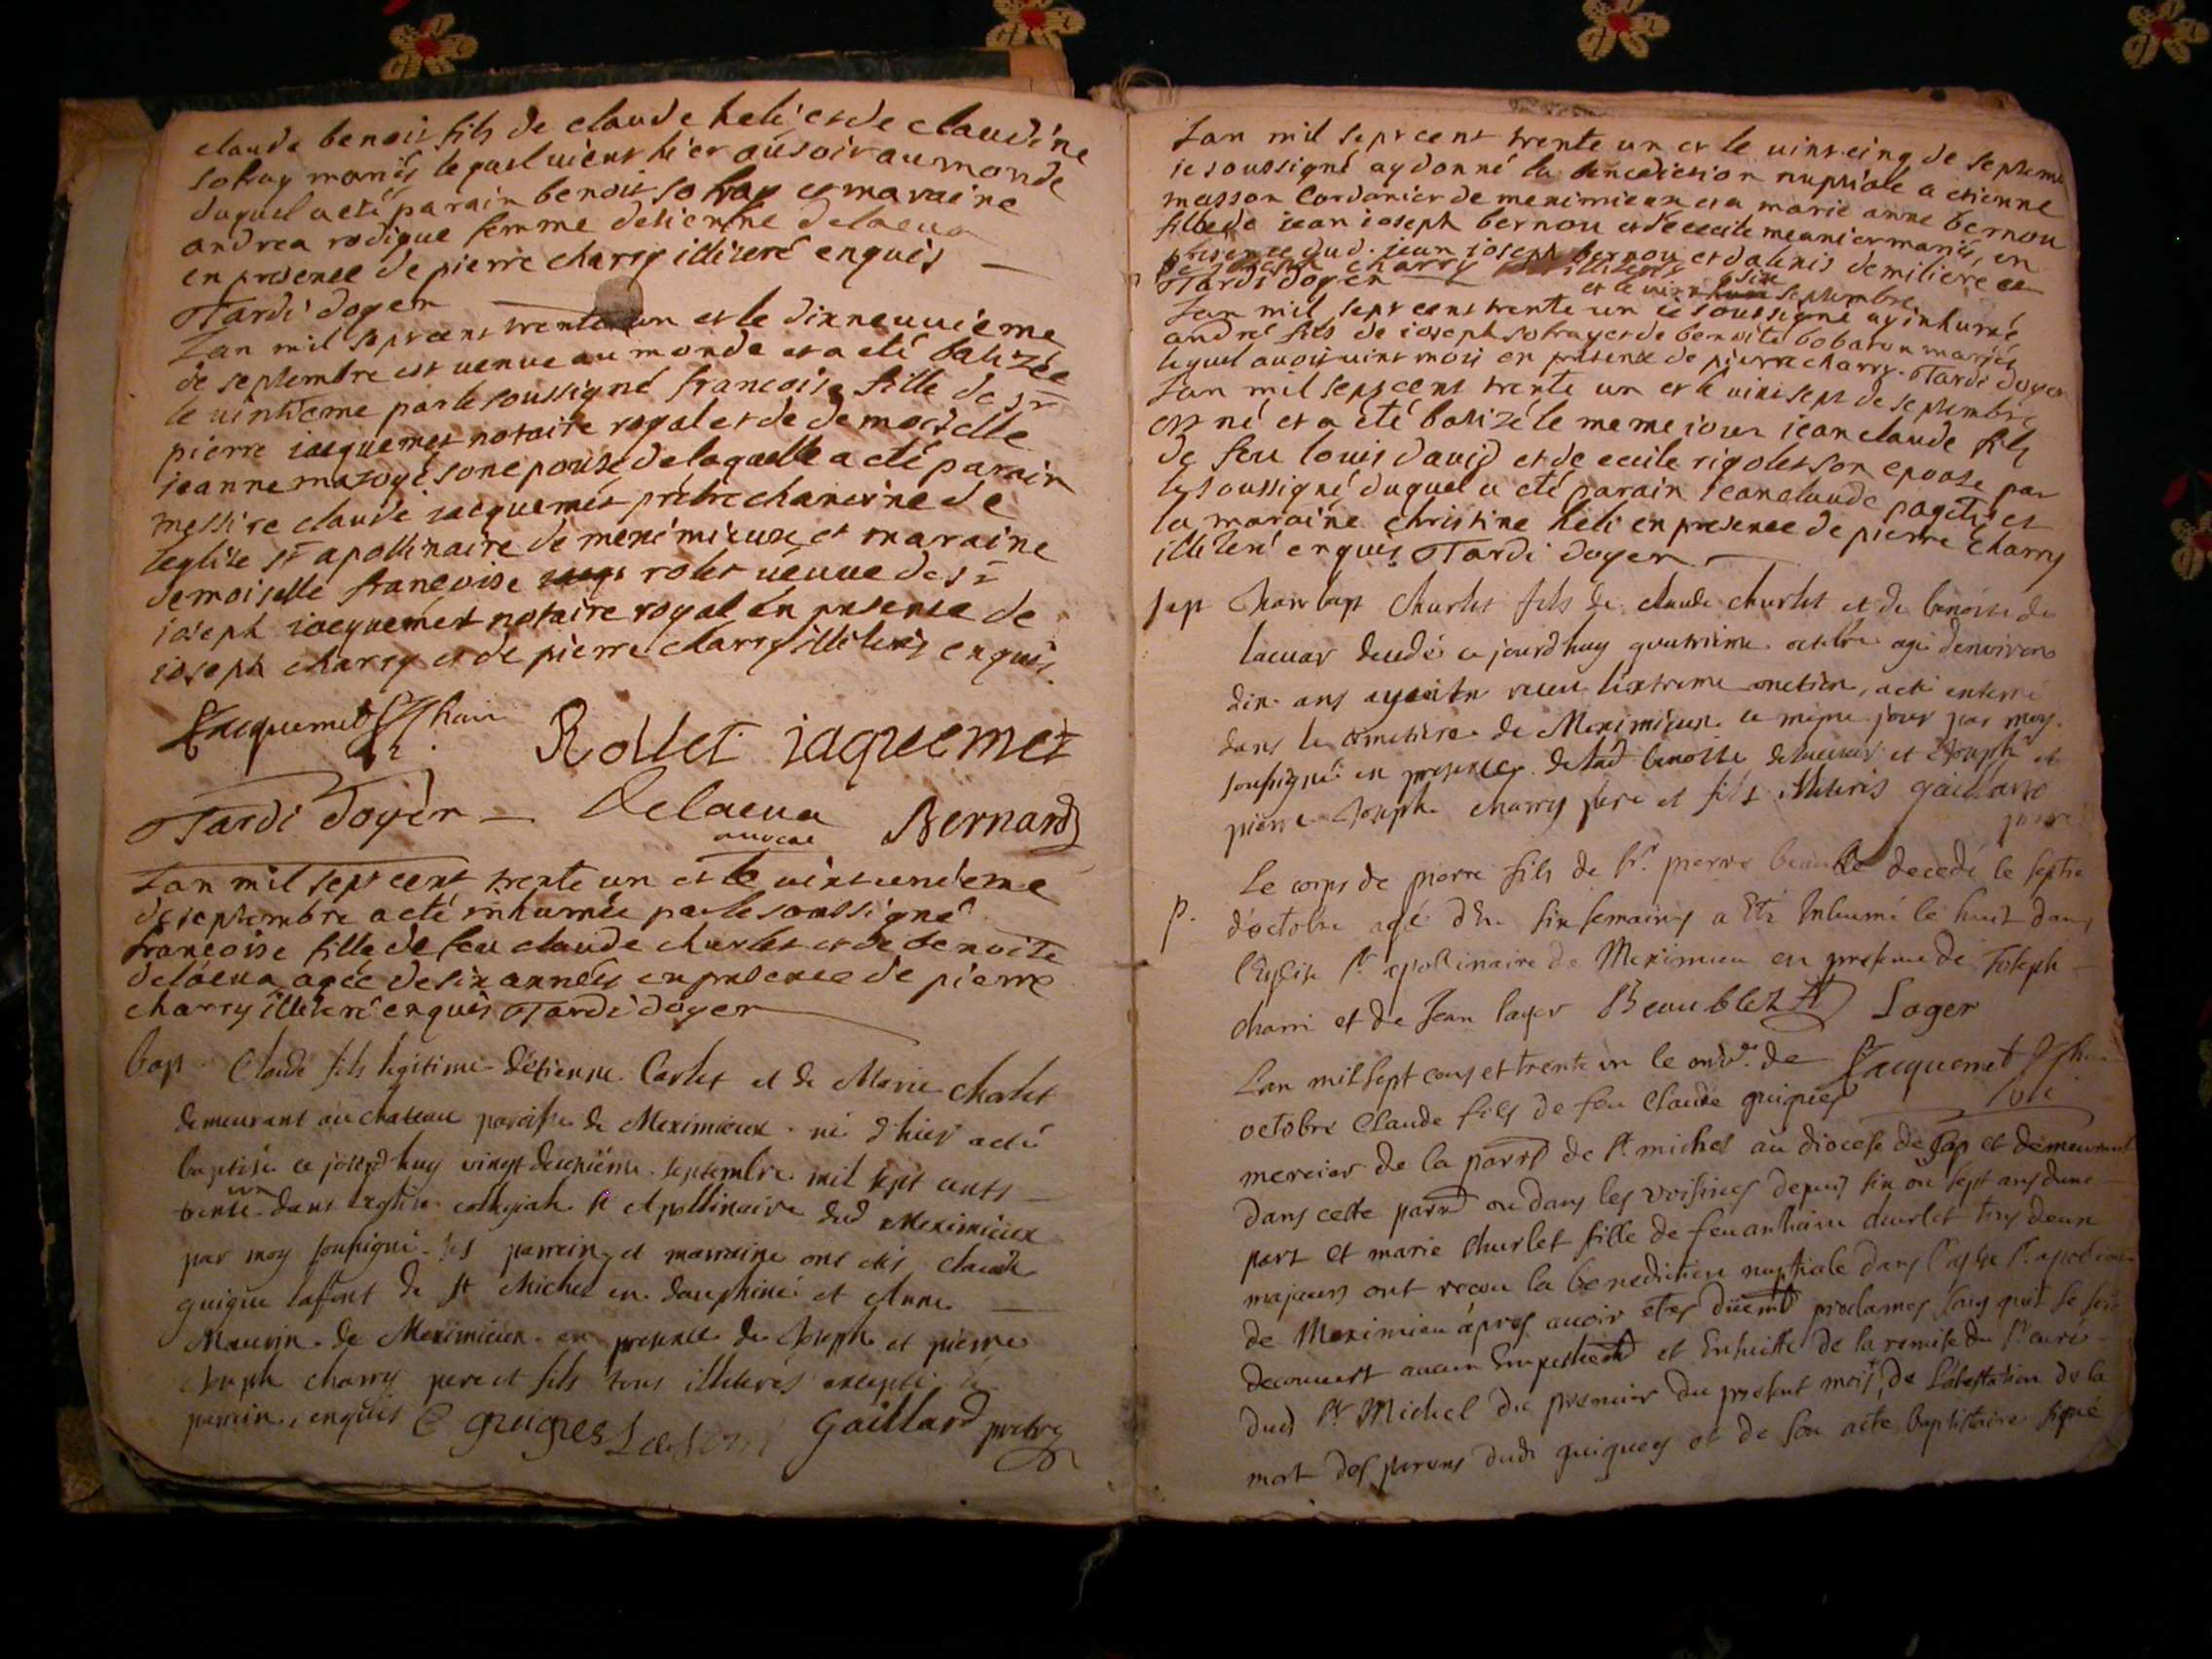 claude benoit fils de claude heli et de claudine
sotray mariés lequel vient hier au soir au monde
duquel a eté parain benoit sotray et maraine
andrea rodigue femme detienne delaeua
en presence de pierre charry illiteré enquis
Tardi doyen
Lan mil sept cent trente un et le dixneuvieme
de septembre est venue au monde et a eté batizée
le vintieme par le soussigné francoise fille de sr
pierre iacquemet notaire royal et de demoiselle
ieanne mazoyé son epouse de laquelle a eté parain
messire claude iacquemet prêtre chanoine de
leglise st apollinaire de meximieux et maraine
demoiselle françoise rolet veuve de sr
ioseph iacquemet notaire royal en presence de
ioseph charry et de pierre charry illiterés enquis
Jacquemet
Rollet iaquemet
Tardi doyen
Delaeua
auocat
Bernard
Lan mil sept cent trente un et le vint unieme
de septembre a eté inhumée par le soussigné
francoise fille de feu claude churlet et de benoite
delaeua agée de six années en presence de pierre
charry illiteré enquis Tardi doyen
bap Claude fils legitime d'etienne Carlet et de Marie Charlet
demeurant au chateau paroisse de Meximieux né d'hier a eté
baptisé ce jourdhuy vingt deuxiéme septembre mil sept cents
trente un dans leglise collegiale st Apollinaire dud Meximieux
par moy soussigné les parrain et marraine ont etés claude
guigue laffont de st Michel en dauphiné et Anne
Mauvin de Meximieux en presence de Joseph et pierre
Joseph charry pere et fils tous illiterés excepté le
parrain, enquis C guigues Gaillard pretre
Lan mil sept cent trente un et le vint cinq de septembre
ie soussigné ay donné la benediction nuptiale a etienne
masson Cordonier de meximieux et a marie anne bernou
fille de iean ioseph bernou et de cecile meunier mariés, en
presence dud. jean ioseph bernou et dalexis demiliere et
de charry illiterés
Tardi doyen
et le vint six septembre
Lan mil sept cens trente un ie soussigné ay inhumé
andré fils de ioseph sotray et de benoite bobaton mariés
lequel avoit vint mois en presence de pierre charry Tardi doyen
Lan mil sept cent trente un et le vint sept de septembre
est né et a été batizé le meme iour iean claude fils
de feu louis david et de cecile rigolet son epouse par
le soussigné duquel a eté parain iean claude pagets et
la maraine christine heli en presence de pierre charry
illiteré enquis Tardi doyen
sep Jean bap Churlet fils de claude churlet et de benoite de
lacuas decedé ce jourdhuy quatrieme octobre agé denviron
dix ans ayant receu lextreme onction, a eté enterré
dans le cimetiere de Meximieux le même jour par moy
soussigné en presence de lad benoite delacuas et Joseph et
pierre Joseph charry pere et fils illiterés gaillard
pretre
p. Le corps de pierre fils de sr. pierre beaublé decedé le septie
d'octobre agé d'en. six semaines a été Inhumé le huit dans
l'Eglise st apollinaire de Meximieu en presence de Joseph
charri et de Jean lager Beaublez Lager
Jacquemet
L'an mil sept cens et trente un le de
octobre Claude fils de feu Claude guigues
mercier de la parr de st michel au diocese de Gap et demeurant
dans cette parr ou dans les voisines depuis six ou sept ans dune
part et marie churlet fille de feu anthoine churlet tous deux
majeurs ont recou la benediction nuptiale dans l'eglise st apollinaire
de Meximieu après avoir etes düemt proclames sans quil se soit
decouvert aucun Empeschemt et Ensuitte de la remise du sr curé
dud st Michel du premier du present mois, de L'atestation de la
mort des parens dudt guigues et de son acte baptistaire signé